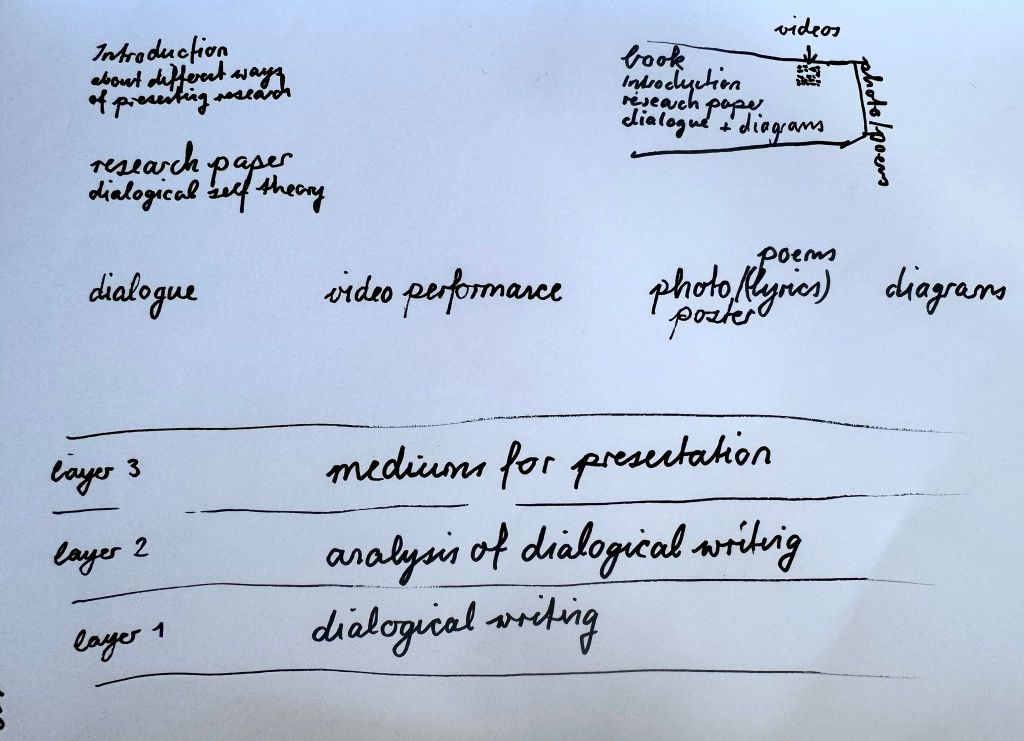 Introduction
about different ways
of presenting research
research paper
dialogical self theory
videos
book
Introduction
research paper
dialogue + diagrams
photo/poems
dialogue
video performance
poems
photo/(lyrics)
poster
diagrams
layer 3
mediums for presentation
layer 2
analysis of dialogical writing
layer 1
dialogical writing